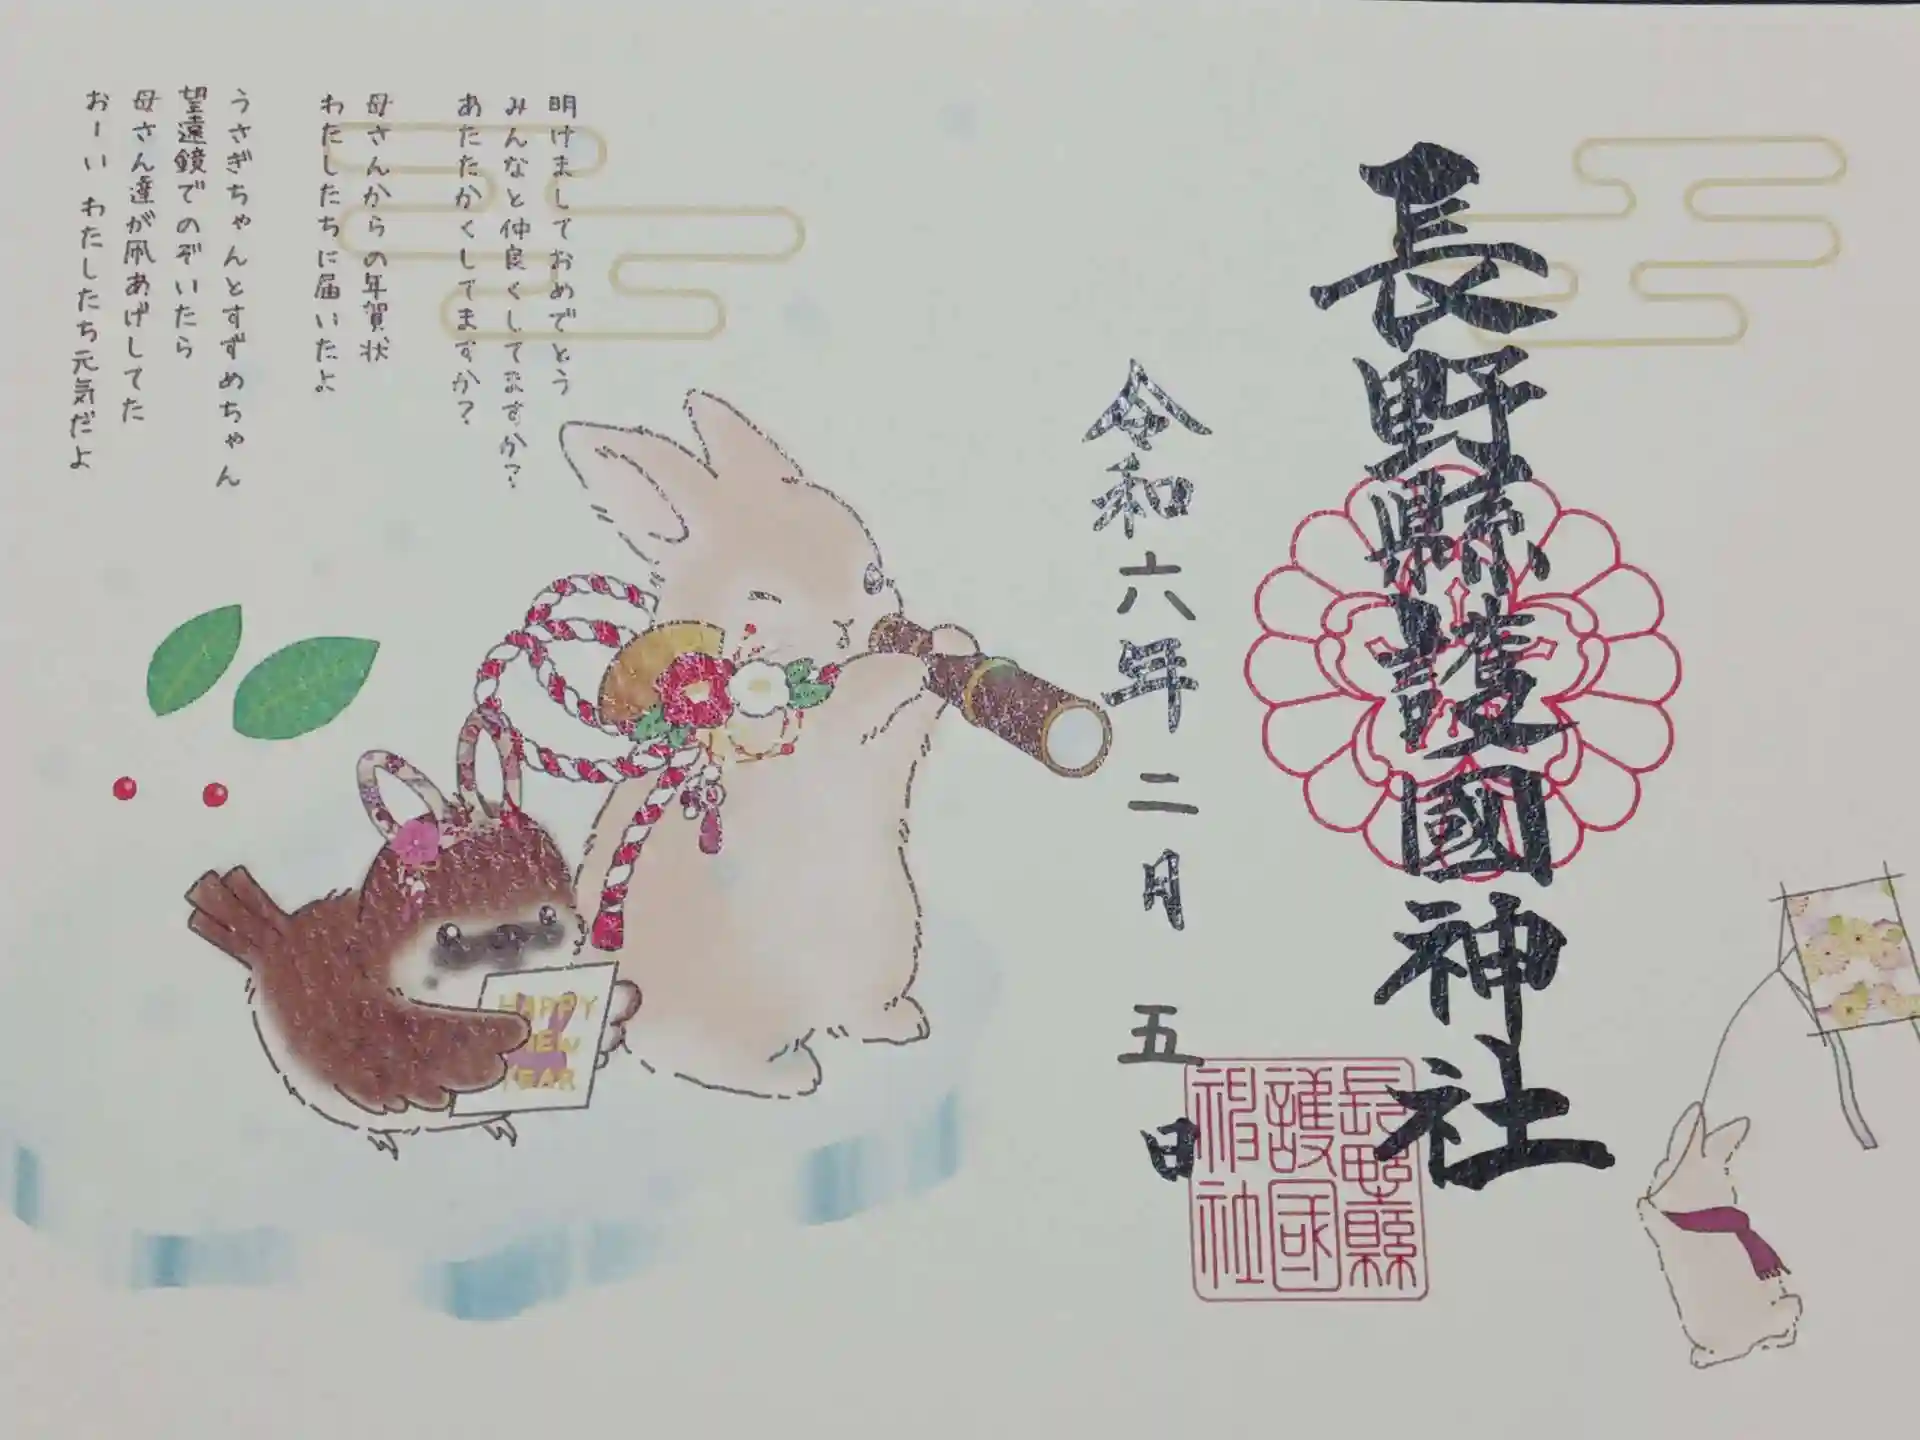 長野縣護國神社
令和六年二月五日
長野縣
護國
神社
明けましておめでとう
みんなと仲良くしてますか？
あたたかくしてますか？
母さんからの年賀状
わたしたちに届いたよ
うさぎちゃんとすずめちゃん
望遠鏡でのぞいたら
母さん達が凧あげしてた
おーい わたしたち元気だよ
HAPPY
NEW
YEAR